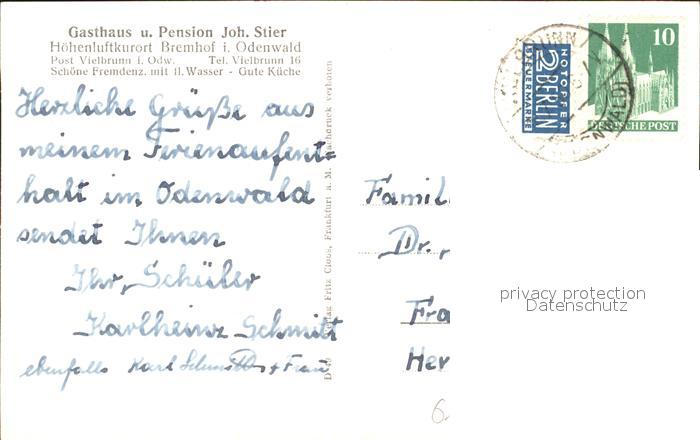 Gasthaus u. Pension Joh. Stier
Höhenluftkurort Bremhof i. Odenwald
Post Vielbrunn i. Odw. Tel. Vielbrunn 16
Schöne Fremdenz. mit fl. Wasser - Gute Küche
Herzliche Grüße aus
meinem Ferienaufent=
halt im Odenwald
sendet Ihnen
Ihr, Schüler
Karlheinz Schmitt
ebenfalls Karl Schmitt + Frau
Verlag Fritz Cloos, Frankfurt a. M. Nachdruck verboten
NOTOPFER
2 BERLIN
STEUERMARKE
10
DEUTSCHE POST
Famil
Dr.,
Fra
Her
6.
privacy protection
Datenschutz